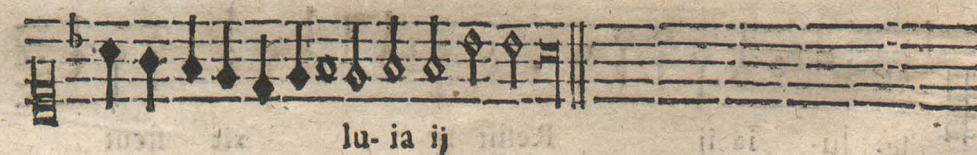 lu- ia ij